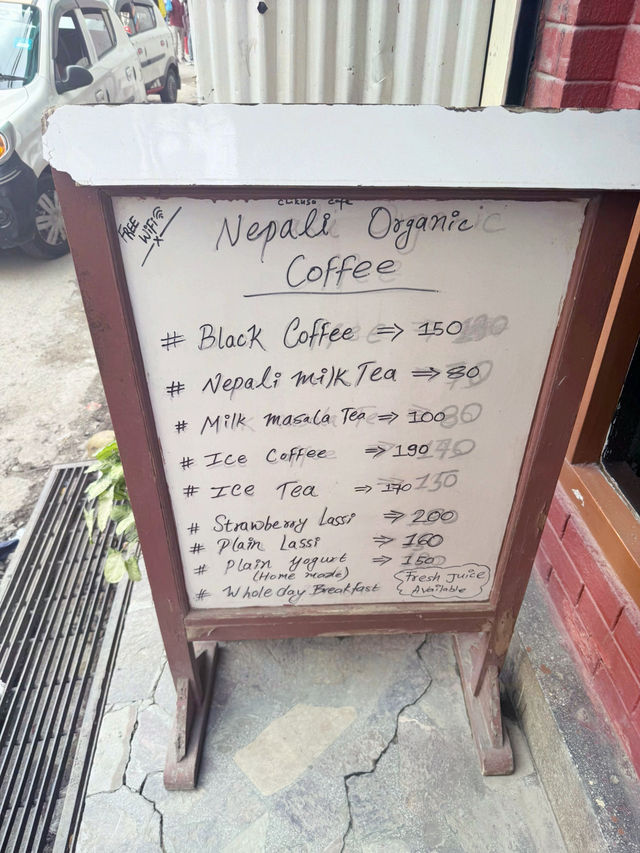 FREE
WiFi
Nepali Organic
Coffee
# Black Coffee ⇒ 150
# Nepali milk Tea ⇒ 80
# Milk masala Tea ⇒ 100
# Ice Coffee ⇒ 190
# Ice Tea ⇒ 170
# Strawberry Lassi ⇒ 200
# Plain Lassi ⇒ 160
# Plain yogurt ⇒ 150
(Home made)
# Whole day Breakfast
Fresh Juice
Available